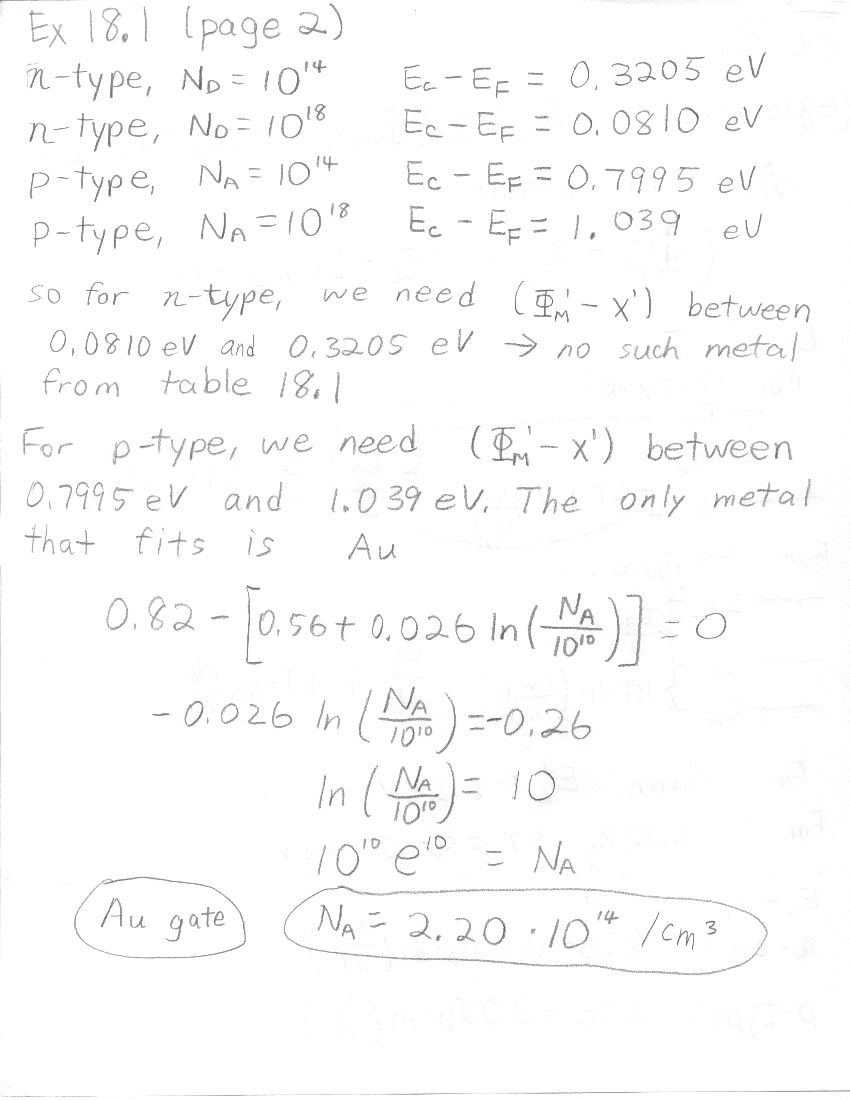 Ex 18.1 (page 2)
n-type, N_D = 10^14 E_c - E_F = 0.3205 eV
n-type, N_D = 10^18 E_c - E_F = 0.0810 eV
p-type, N_A = 10^14 E_c - E_F = 0.7995 eV
p-type, N_A = 10^18 E_c - E_F = 1.039 eV
so for n-type, we need (Φ_M' - χ') between
0.0810 eV and 0.3205 eV → no such metal
from table 18.1
For p-type, we need (Φ_M' - χ') between
0.7995 eV and 1.039 eV. The only metal
that fits is Au
0.82 - [0.56 + 0.026 ln(N_A/10^10)] = 0
-0.026 ln(N_A/10^10) = -0.26
ln(N_A/10^10) = 10
10^10 e^10 = N_A
Au gate N_A = 2.20 · 10^14 /cm^3